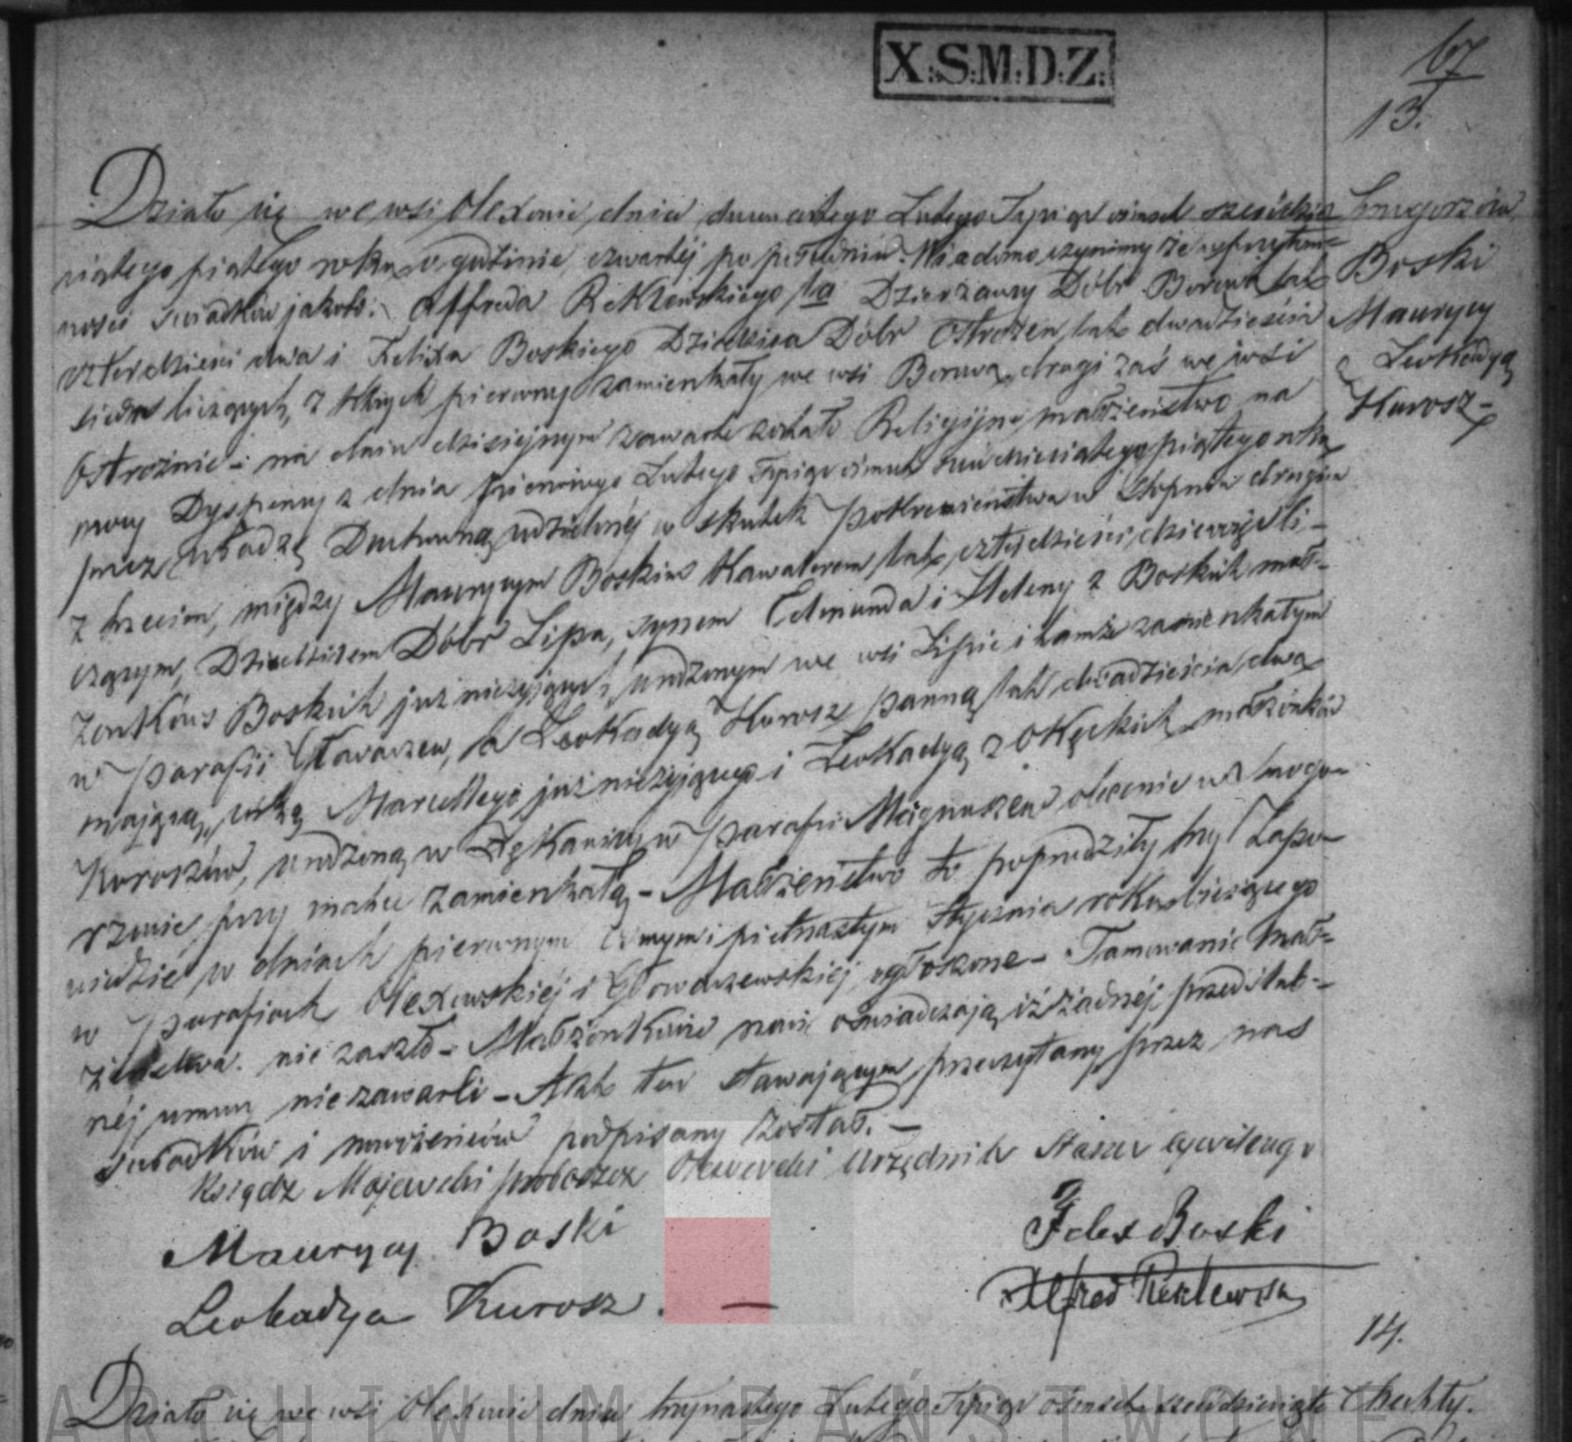 X.S.M.D.Z.
67
13.
Działo się we wsi Olexowie dnia dwunastego Lutego Tysiąc ośmset sześćdzie
siątego piątego roku o godzinie czwartéj po południu. Wiadomo czynimy że w przytom-
ności świadków jako to: Alffreda Rekłewskiego Dzierzawcy Dóbr Borowa lat
czterdzieści dwa i Felixa Boskiego Dziedzica Dóbr Ostrożeń lat dwadzieścia
siedm liczących, z których pierwszy zamieszkały we wsi Borowa, drugi zaś we wsi
Ostrożnie - na dniu dzisiejszym zawarte zostało Religijne małżeństwo na
mocy Dyspensy z dnia pierwszego Lutego Tysiąc ośmset sześćdziesiątego piątego roku
przez władzę Duchowną udzielonéj w skutek pokrewieństwa w stopniu drugim
z trzecim, między Maurycym Boskim Kawalerem, lat czterdzieści dziewięć li-
czącym, Dziedzicem Dóbr Lipa, synem Edmunda i Heleny z Boskich mał-
żonków Boskich już nieżyjących, urodzonym we wsi Lipie i tamże zamieszkałym
w parafii Głowaczew, a Leokadyą Kurosz panną lat dwadzieścia dwa
mającą, córką Marcellego już nieżyjącego i Leokadyą z Okęckich małżonków
Kuroszów, urodzoną w w parafii Magnuszew obecnie w
przy matce zamieszkałą - Małżeństwo to poprzedziły trzy Zapo-
wiedzie w dniach pierwszym ósmym i piętnastym Stycznia roku bieżącego
w parafiach Olexowskiéj i Głowaczewskiéj ogłoszone - Tamowanie mał-
żeństwa nie zaszło - Małżonkowie nowi oświadczają iż żadnéj przedślub-
néj umowy nie zawarli - Akt ten stawającym przeczytany przez nas
świadków i nowożeńców podpisany został. -
Ksiądz Majewski proboszcz Olexowski Urzędnik Stanu Cywilnego
Maurycy Boski
Felex Boski
Leokadya Kurosz. —
Alfred Rekłewski
Boski
Maurycy
z Leokadyą
Kurosz -
14.
Działo się we wsi Olexowie dnia trzynastego Lutego Tysiąc ośmset sześćdziesiąte
Chechły.
ARCHIWUM PAŃSTWOWE